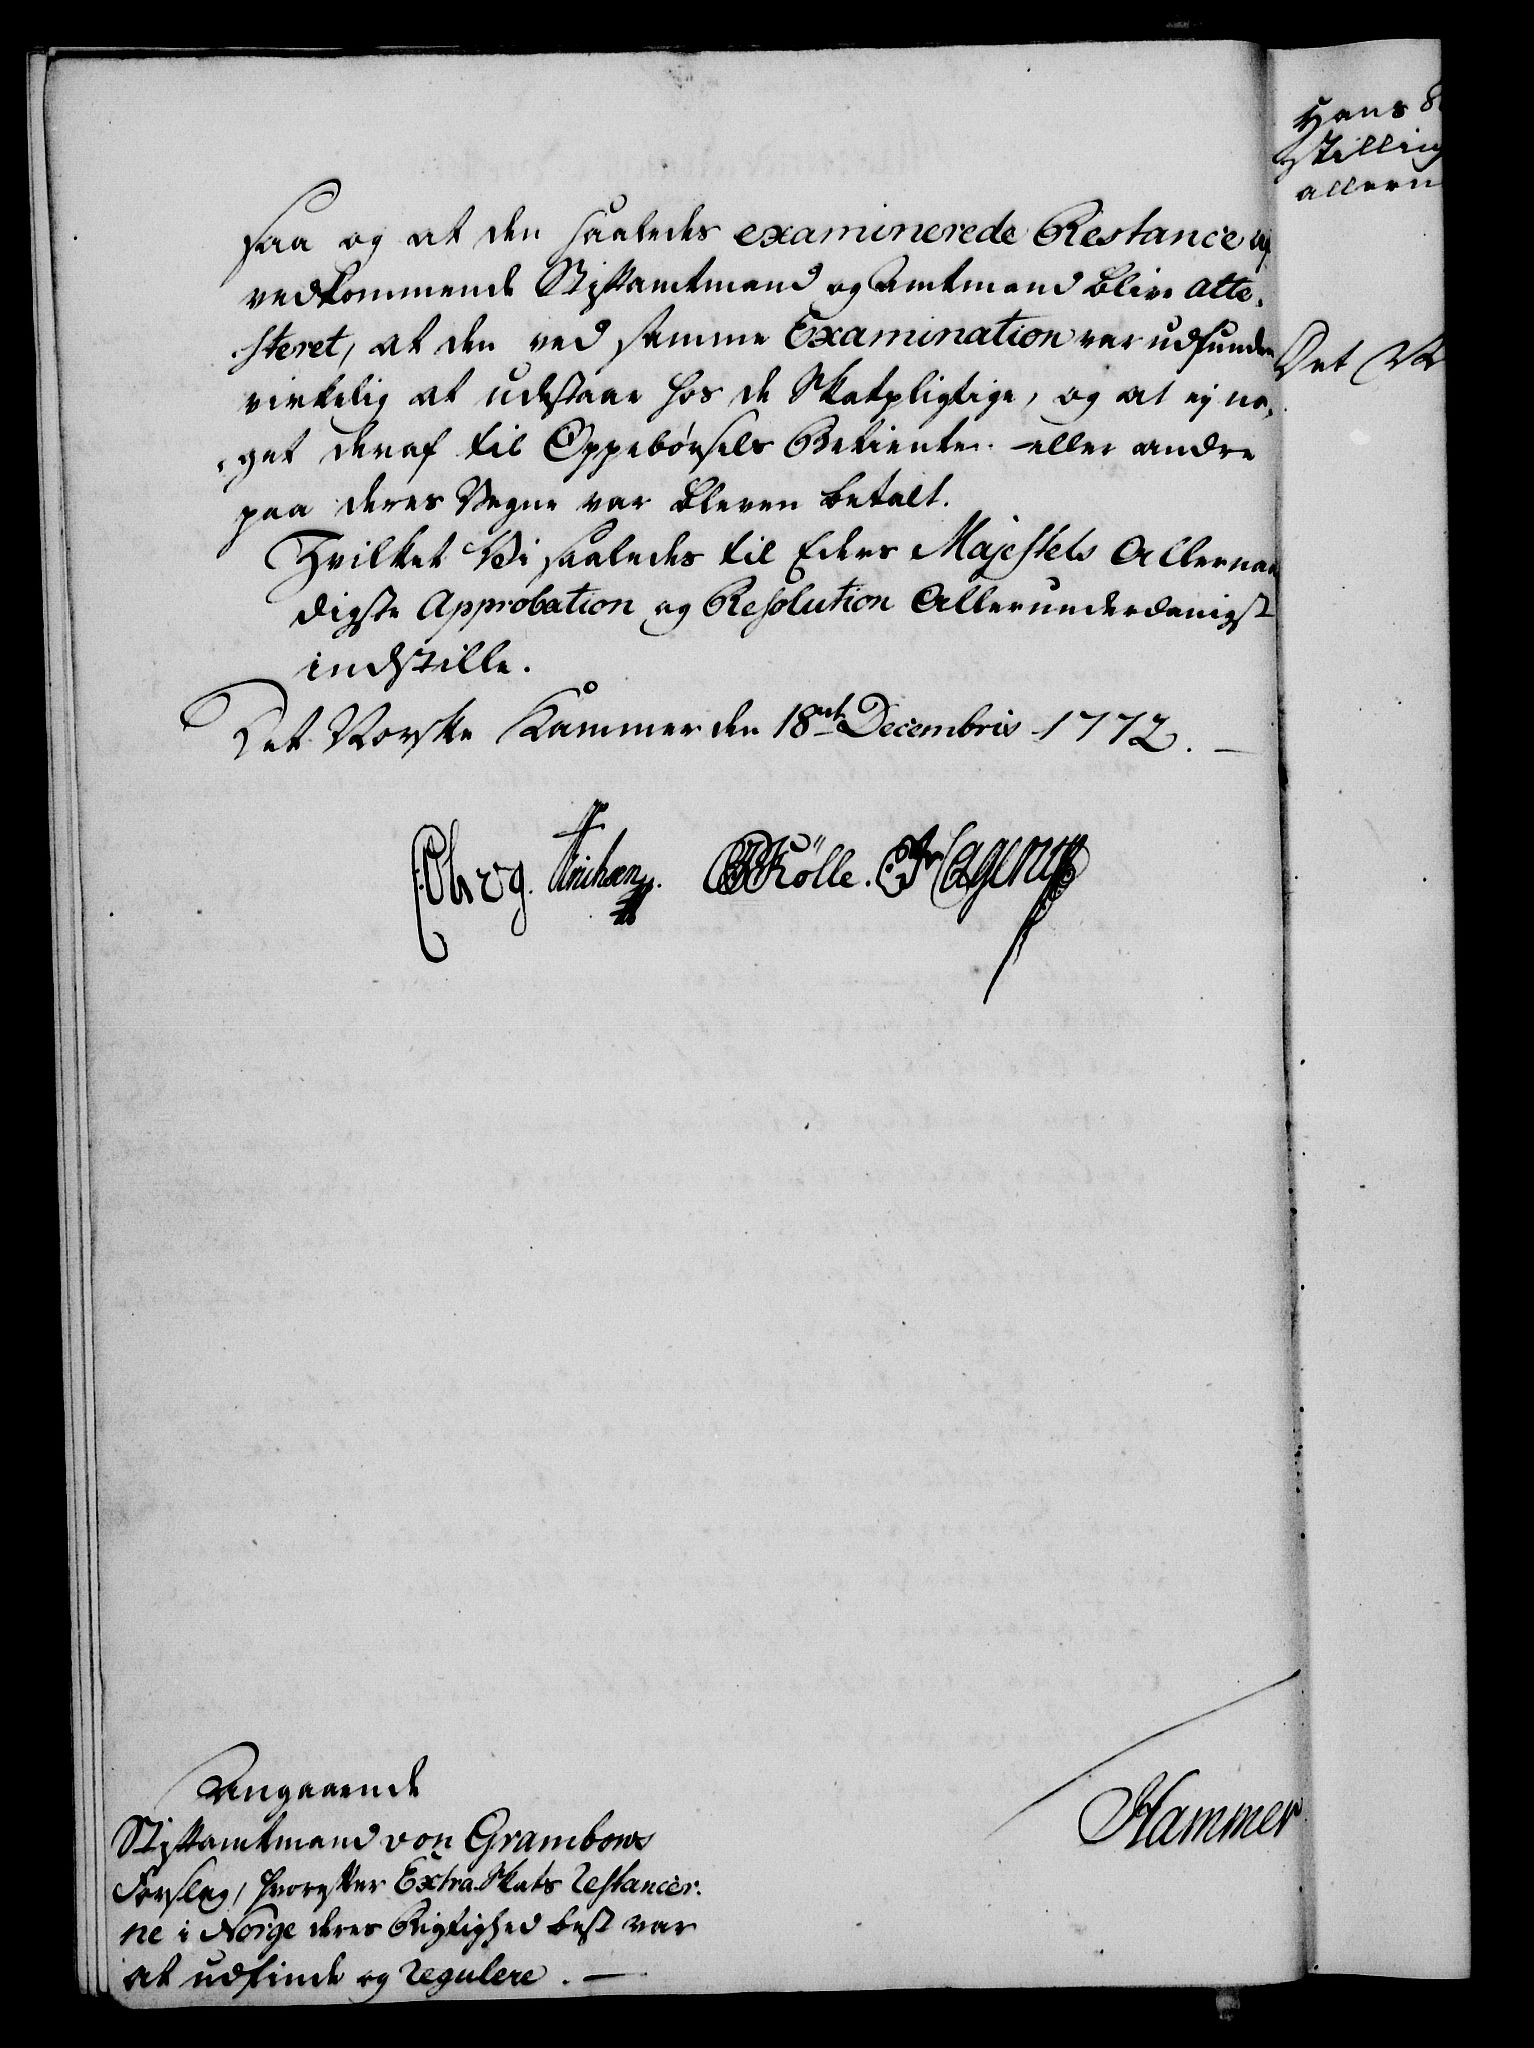 saa og at den saaledes examinerede Restance af
vedkommende Stiftamtmand og Amtmand blive atte-
steret, at den ved samme Examination var udfunden
virkelig at udestaae hos de Skatpligtige, og at ej no-
get deraf til Oppebørsels Betiente eller andre
paa deres Vegne var bleven betalt.
Hvilket Vi saaledes til Eders Majestets Allernaa
digste Approbation og Resolution Allerunderdanigst
indstille.
Det Norske Kammer den 18de Decembris 1772.
Kølle.
Hammer
Angaaende
Stiftamtmand von Grambows
Forslag, hvorefter Extra Skats Restancer-
ne i Norge deres Rigtighed best var
at udfinde og regulere.
Hans
stilling
allern
Det